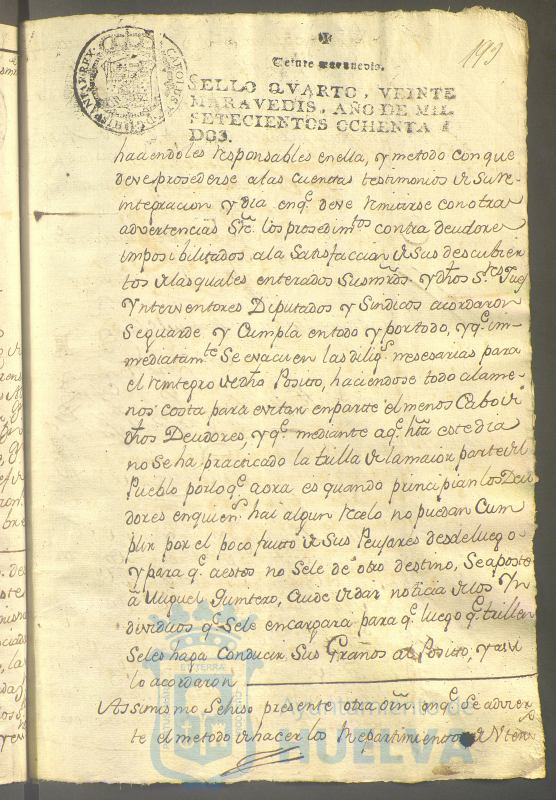 193
Veinte maravedis.
SELLO QVARTO, VEINTE
MARAVEDIS, AÑO DE MIL
SETECIENTOS OCHENTA Y
DOS.
haciendoles responsables en ella, y metodo con que
deve prosederse a las cuentas testimonios de su re-
integracion y dia enqe. deve remitirse con otras
advertencias Sre. los prosedimtos contra deudores
imposibilitados a la Satisfaccion de Sus descubier
tos de las quales enterados Susmrds. y dhos Sres Juez
Ynterventores Diputados y Sindicos acordaron
Se guarde y Cumpla en todo y por todo, y qe. im-
mediatamte Se evacuen las diligs. nesesarias para
el reintegro de dho Posito, haciendose todo a la me-
nos costa para evitar en parte el menos Cabo de
dhos Deudores, y qe. mediante a qe. hta este dia
no Se ha practicado la trilla de la maior parte del
Pueblo por lo qe. aora es quando principian los Deu
dores en quiens. hai algun recelo no puedan Cum
plir por el poco fruto de Sus Peujares desde luego
y para qe. a estos no Sele de otro destino, Se aposte
a Miguel Quintero, Cuide de dar noticia de los Yn
dividuos qe. Sele encargara para qe. luego qe. trillen
Seles haga Conducir Sus Granos al Posito, y asi
lo acordaron
Assimismo Se hiso presente otra orn enqe. Se advier
te el metodo de hacer los Repartimientos de
Ayuntamiento de
HUELVA